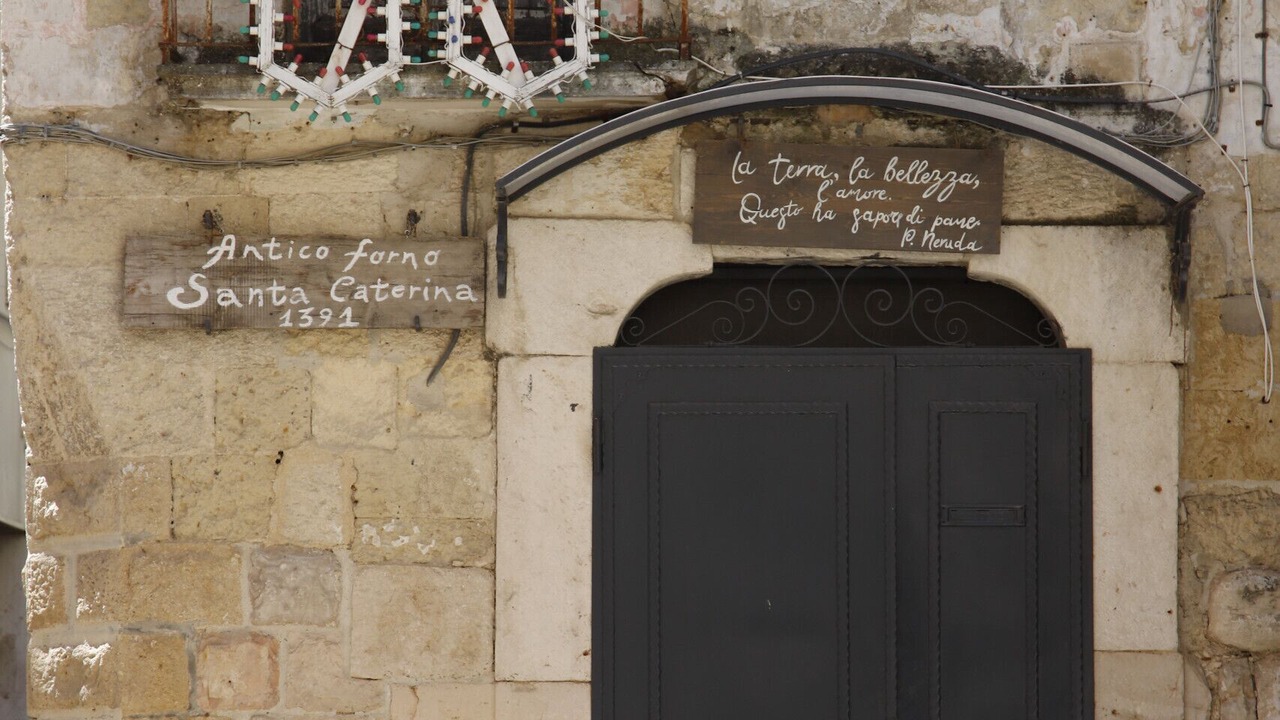 Antico forno
Santa Caterina
1391
la terra, la bellezza,
l'amore.
Questo ha sapore di pane.
P. Neruda